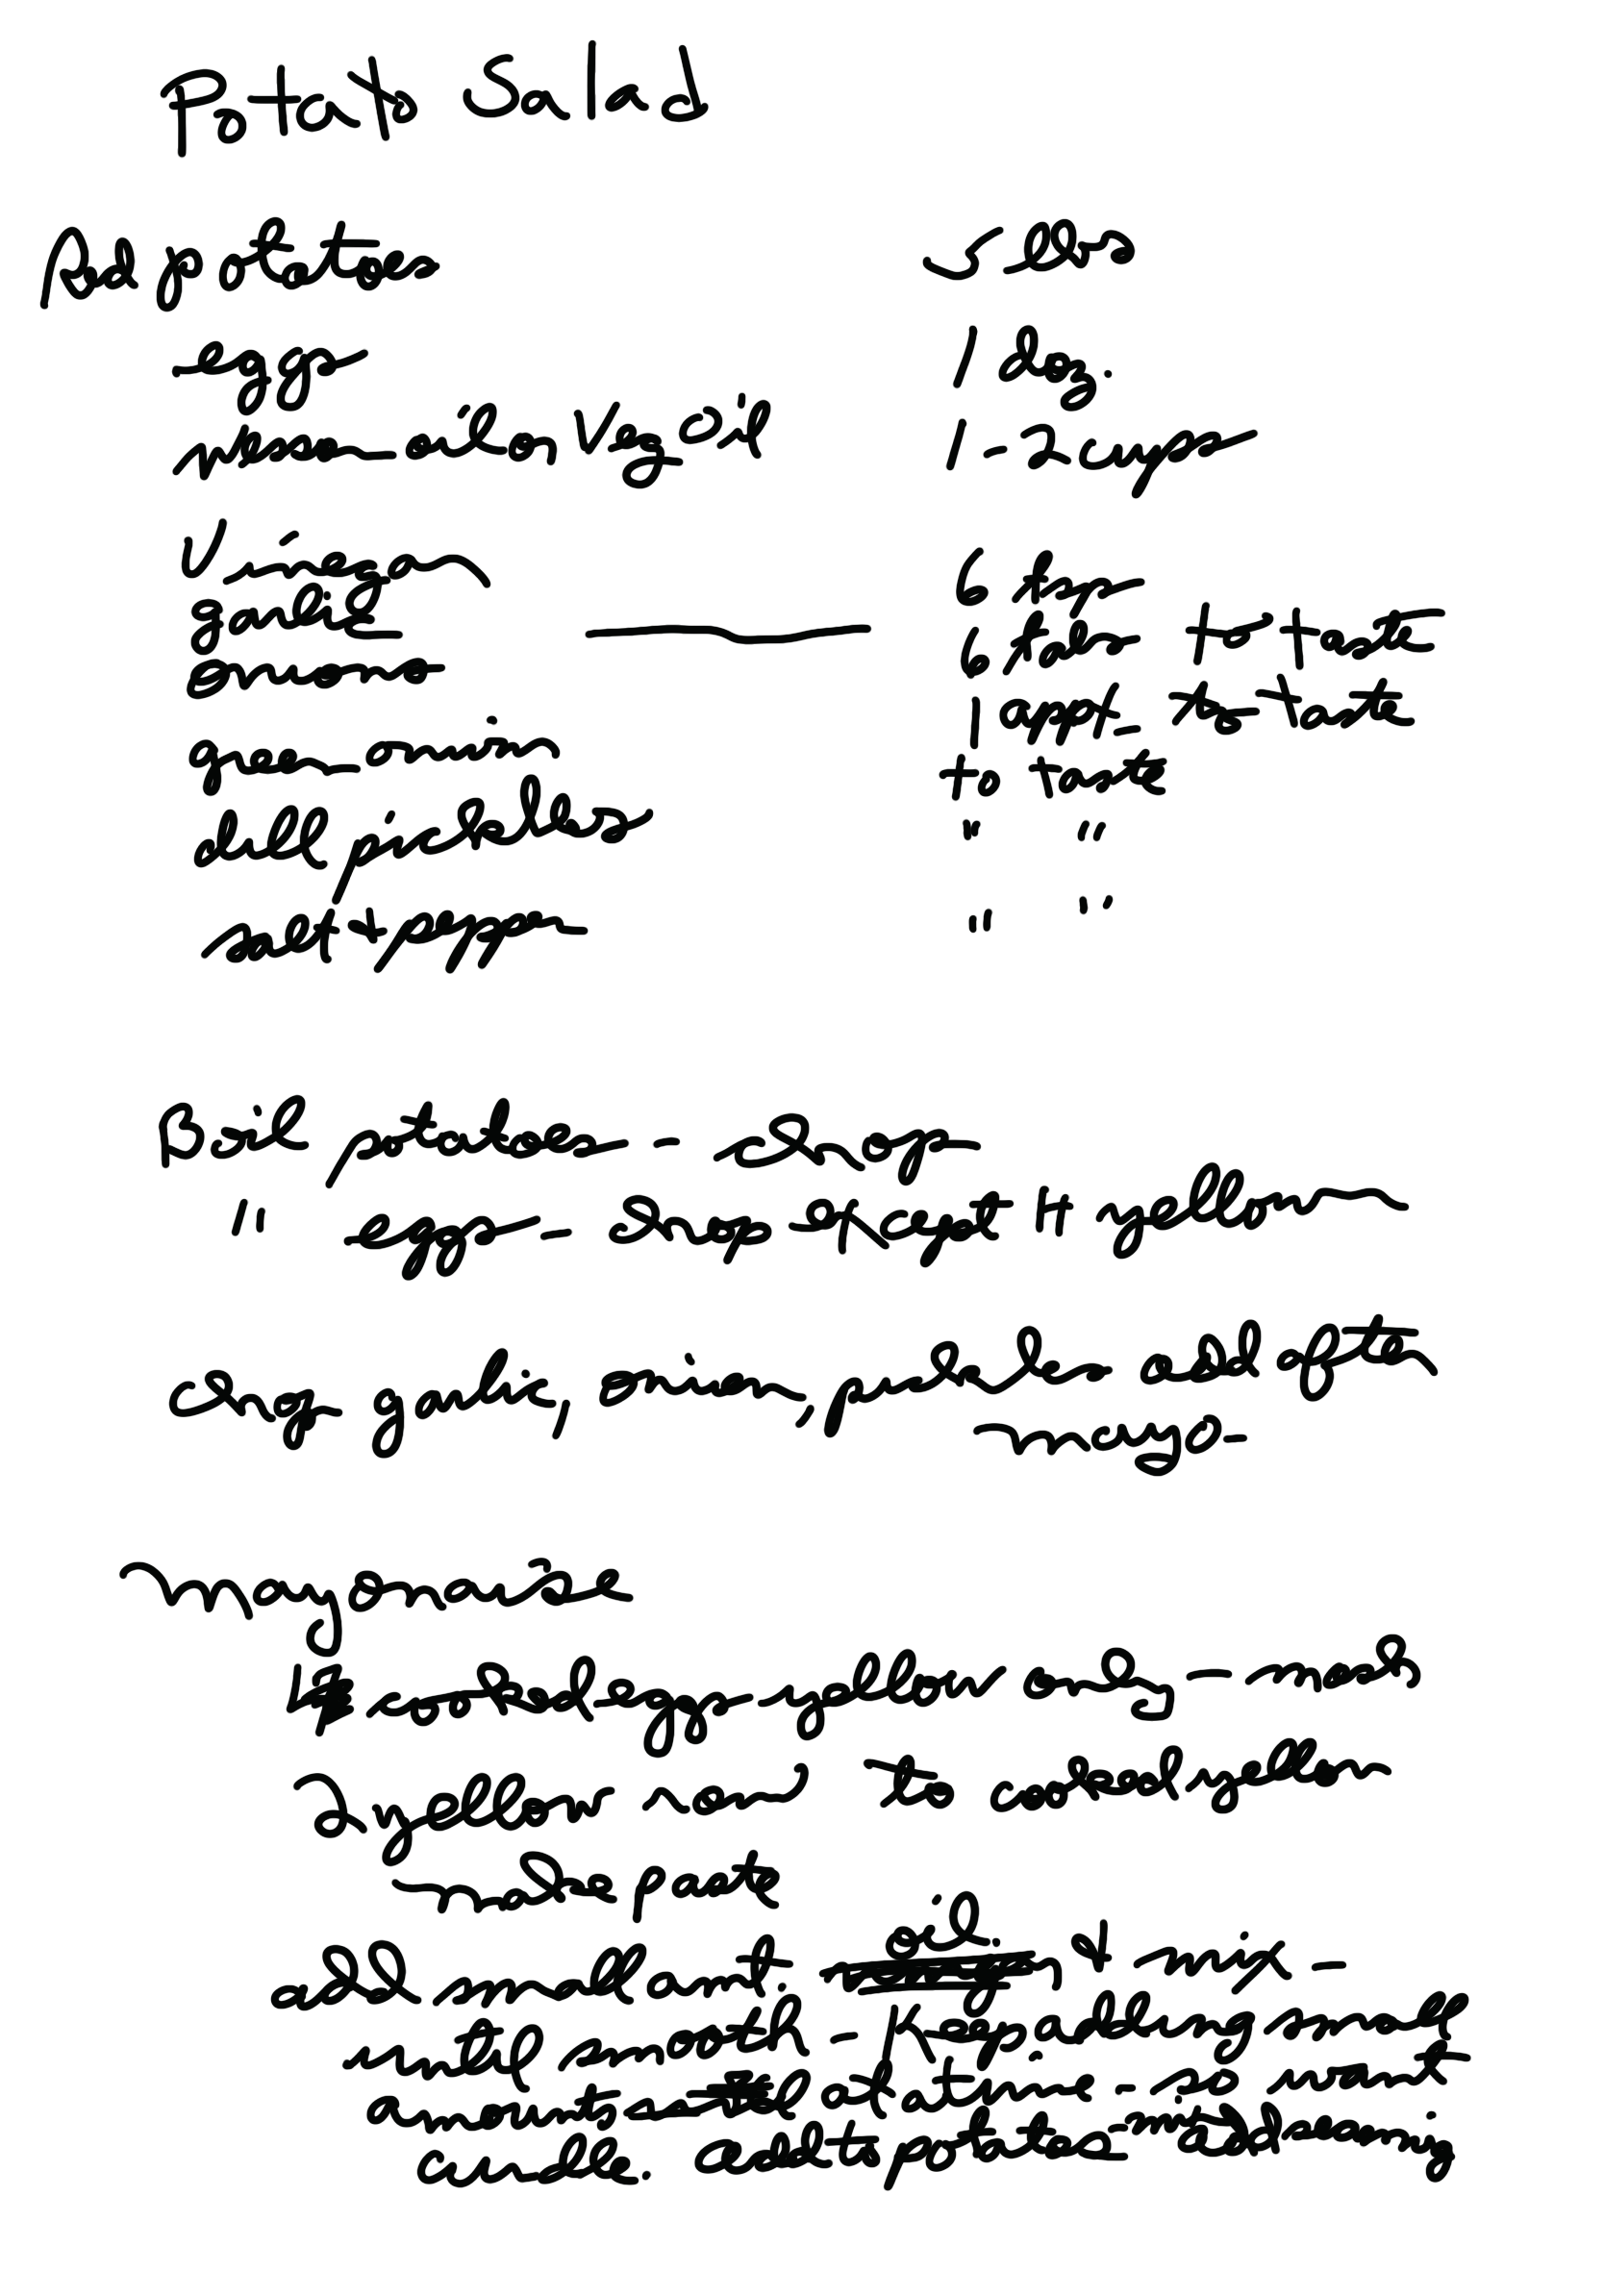 Potato Salad
Red potatoes 5 lbs
eggs 1 doz.
wesson oil or Veg Oil 1-2 cups
Vinegar 6 tsp
garlic — 6 tabs to taste
1 appt. to taste
green onion to taste
dill pickles " "
salt + pepper " "
Boil potatoes - chop
" eggs - chop except 4 yellow
chop garlic, onion, pickles add after
mayo -
Mayonaise
4 cooked eggs yellow only - mash
2 yellow raw to cooked yellow
make paste
add small amt. oil. & mix -
until smooth - Keep adding small
amounts at a time - so won't
curdle. add to potatoes - add seasoning